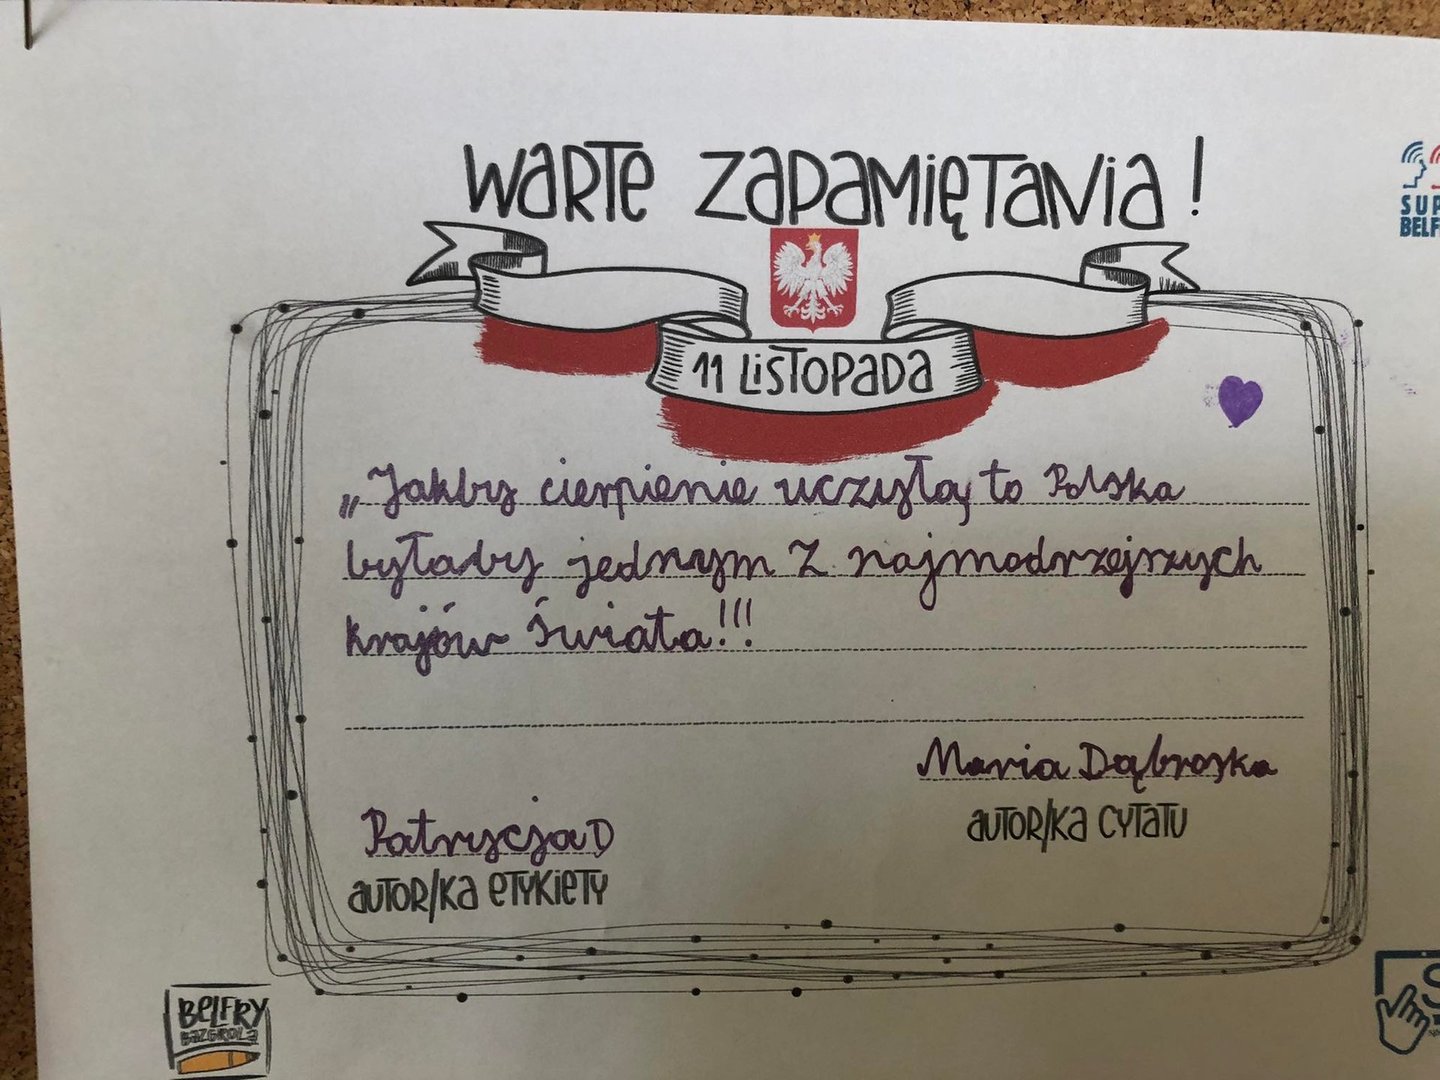 WARTE ZAPAMIĘTANIA!
11 LISTOPADA
„Jakby cierpienie uczyło, to Polska
byłaby jednym z najmodrzejszych
krajów świata!!!
Maria Dąbroska
AUTOR/KA CYTATU
Patrycja D
AUTOR/KA ETYKIETY
BELFRY
BAZGROLĄ
SUP
BELF
S